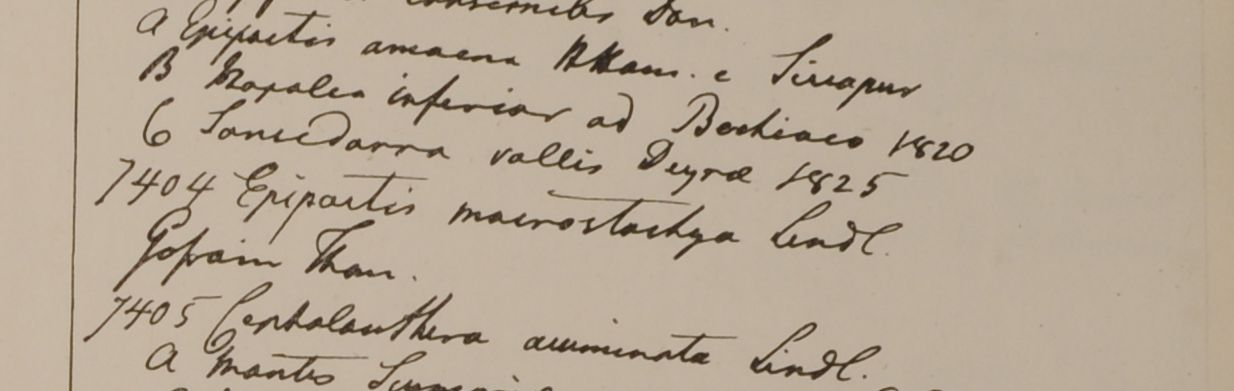 consimilis Don.
A Epipactis amaena BHam. e Sirrapur
B Napalea inferior ad Bechiaco 1820
C Sansedarra vallis Deyrae 1825
7404 Epipactis macrostachya Lindl.
Gosain Than.
7405 Cephalanthera acuminata Lindl.
A Montes